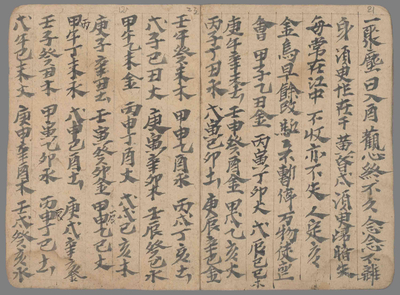 一聚塵 日入酉 觀心終不久 念念不離
身 須臾恒在手 黃昏戌 須臾時失
每常在江中 不收亦不失 人定亥
金烏早餘改 點點不暫停 萬物使
會 甲子乙丑金 丙寅丁卯火 戊辰己巳木
庚午辛未土 壬申癸酉金 甲戌乙亥火
丙子丁丑水 戊寅己卯土 庚辰辛巳金
壬午癸未木 甲申乙酉水 丙戌丁亥土
戊子己丑火 庚寅辛卯木 壬辰癸巳水
甲午乙未金 丙申丁酉火 戊戌己亥木
庚子辛丑土 壬寅癸卯金 甲乙巳火
丙午丁未水 戊申己酉土 庚戌辛亥金
壬子癸丑木 甲寅乙卯水 丙丁巳土
戊午己未火 庚申辛酉木 壬戌癸亥水